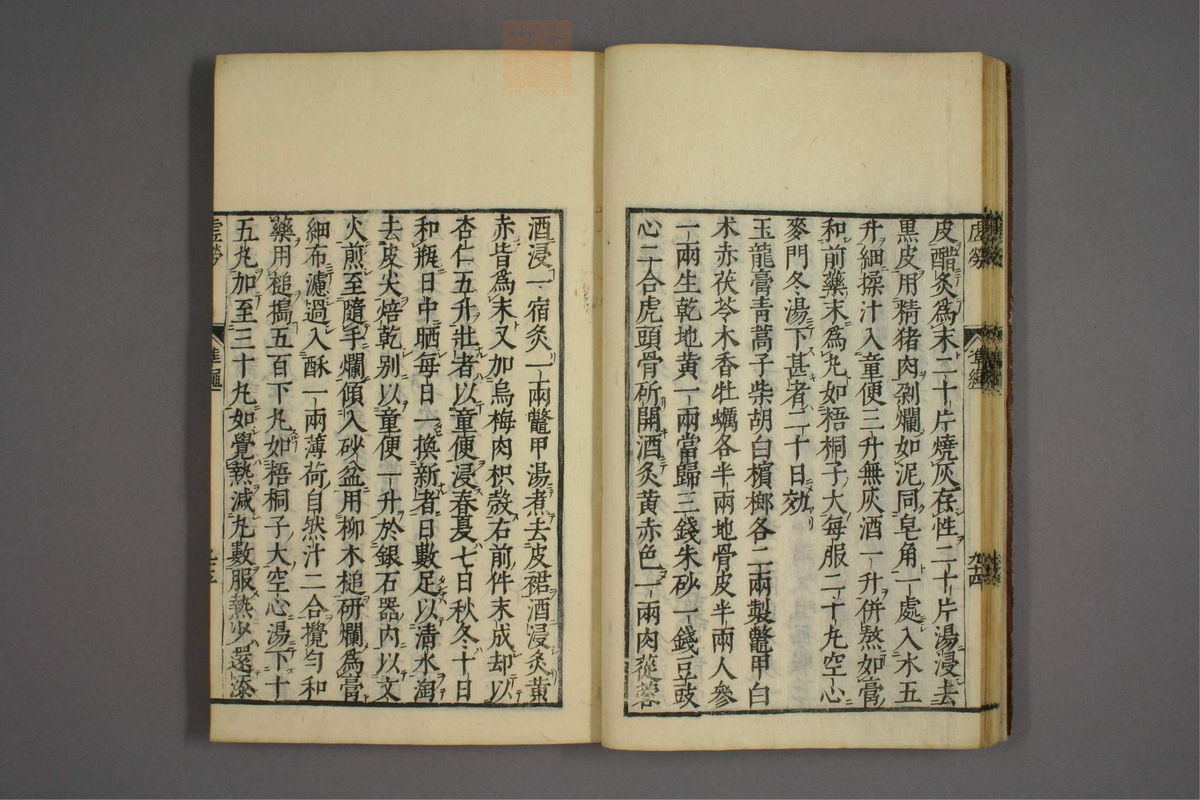 皮醋炙爲末二十片燒灰存性二十片湯浸去
黒皮用精猪肉剁爛如泥同皂角一處入水五
升細揉汁入童便三升無灰酒一升併熬如膏
和前藥末爲丸如梧桐子大每服二十丸空心
麥門冬湯下甚者二十日効
玉龍膏青蒿子柴胡白檳榔各二兩製鼈甲白
术赤茯苓木香牡蠣各半兩地骨皮半兩人參
一兩生乾地黄一兩當歸三錢朱砂一錢豆豉
心二合虎頭骨斫開酒炙黄赤色一兩肉蓯蓉
酒浸一宿炙一兩鼈甲湯煮去皮裙酒浸炙黄
赤皆爲末又加烏梅肉枳殼右前件末成却以
杏仁五升壯者以童便浸春夏七日秋冬十日
和瓶日中晒每日一換新者日數足以清水淘
去皮尖焙乾别以童便一升於銀石器内以文
火煎至隨手爛傾入砂盆用柳木槌研爛爲膏
細布濾過入酥一兩薄荷自然汁二合攪匀和
藥用槌搗五百下丸如梧桐子大空心湯下十
五丸加至三十丸如覺熱減丸數服熱少還添